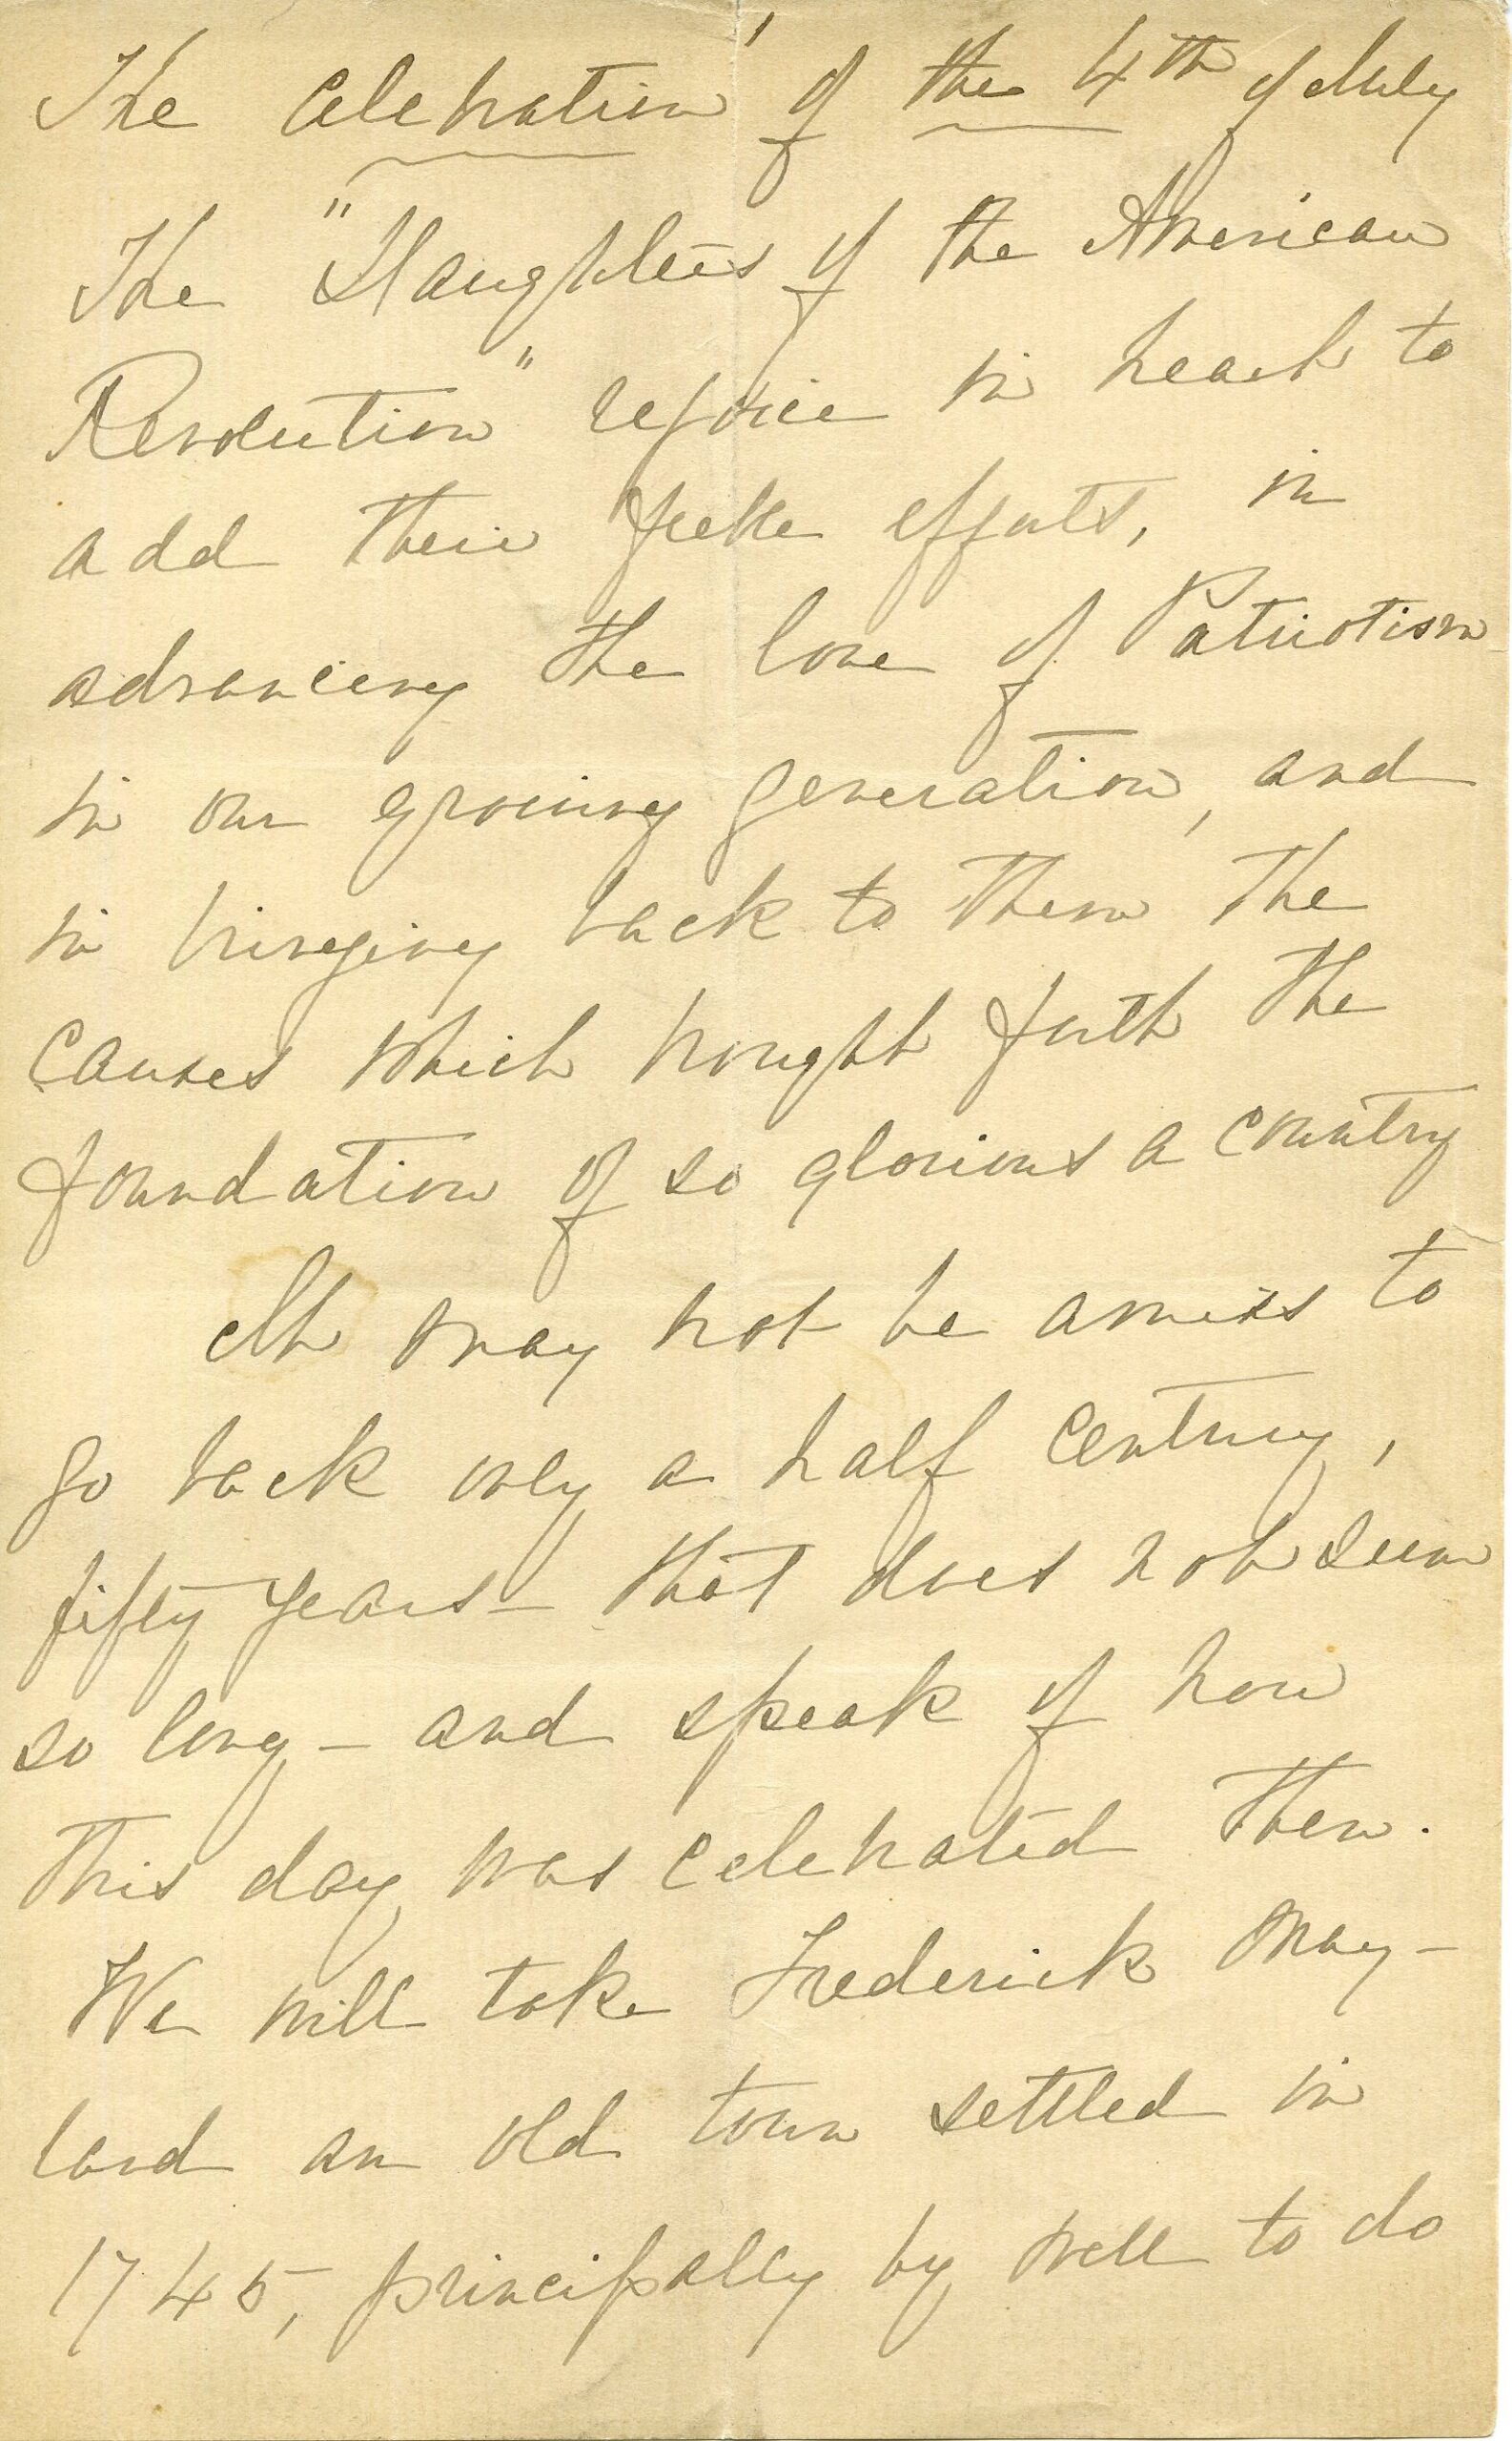 The celebration of the 4th of July
The "Daughters of the American
Revolution" rejoice in heart to
add their feeble efforts, in
advancing the love of Patriotism
in our growing generation, and
in bringing back to them the
causes which brought forth the
foundation of so glorious a country
It may not be amiss to
go back only a half century,
fifty years – that does not seem
so long – and speak of how
this day was celebrated then.
We will take Frederick Mary-
land an old town settled in
1745, principally by well to do